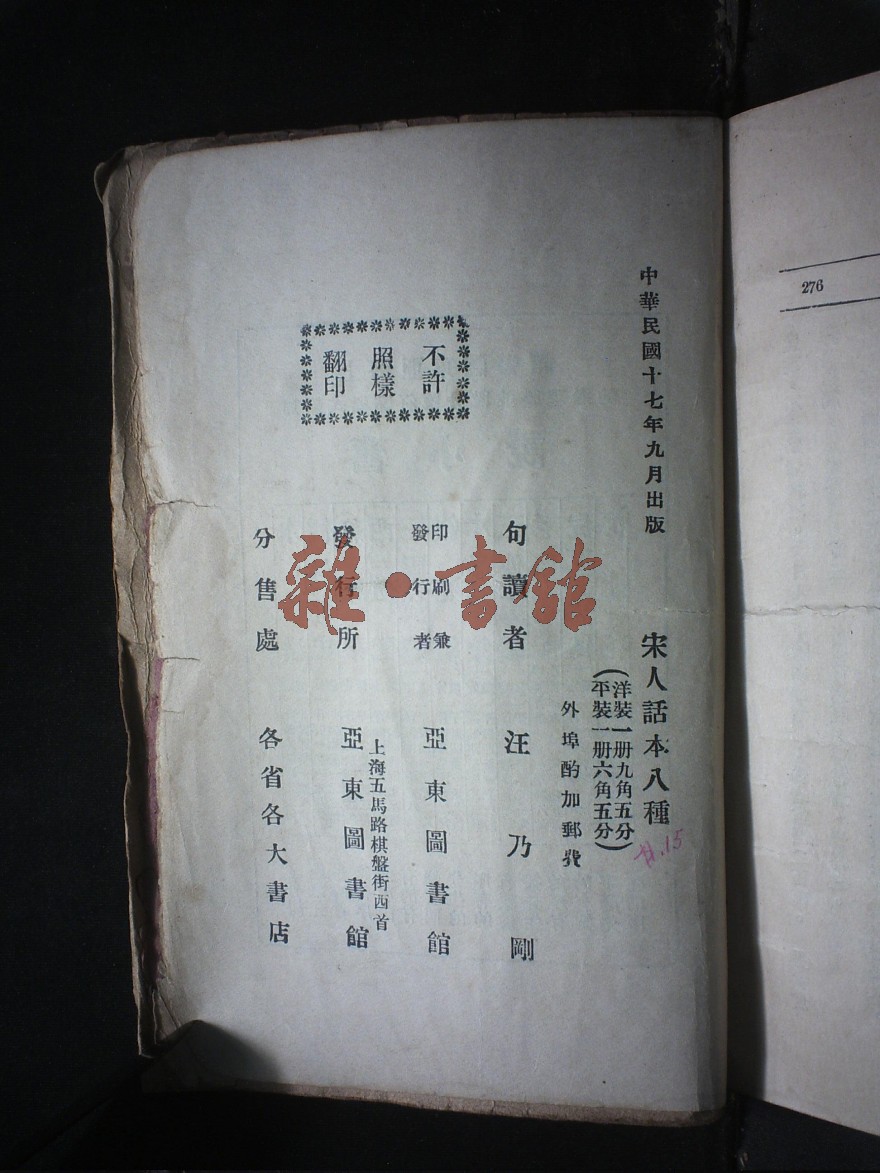 中華民國十七年九月出版
宋人話本八種
(洋裝一册九角五分
平裝一册六角五分)
外埠酌加郵費
句讀者 汪乃剛
印刷兼
發行者 亞東圖書館
上海五馬路棋盤街西首
發行所 亞東圖書館
分售處 各省各大書店
不許
照樣
翻印
276
雜·書館